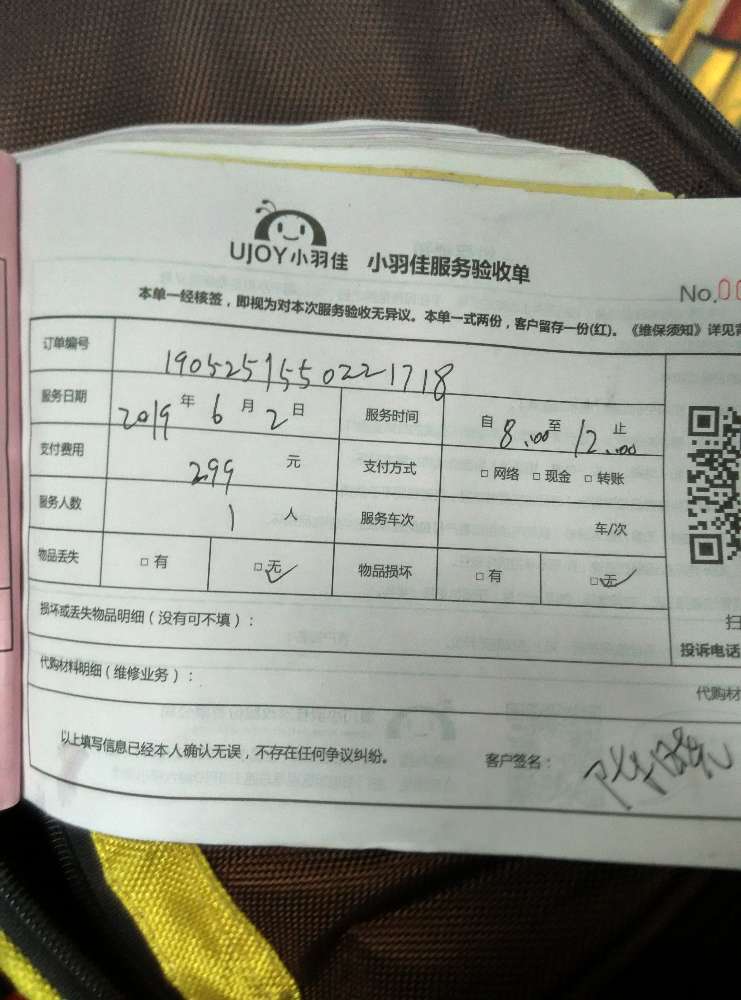 UJOY小羽佳 小羽佳服务验收单
No.00
本单一经核签，即视为对本次服务验收无异议。本单一式两份，客户留存一份(红)。《维保须知》详见背
订单编号 1905251550221718
服务日期 2019 年 6 月 2 日 服务时间 自 8:00 至 12:00 止
支付费用 299 元 支付方式 □ 网络 □ 现金 □ 转账
服务人数 1 人 服务车次 车/次
物品丢失 □ 有 □ 无 ✓ 物品损坏 □ 有 □ 无 ✓
损坏或丢失物品明细（没有可不填）：
扫
投诉电话
代购材料明细（维修业务）：
代购材
以上填写信息已经本人确认无误，不存在任何争议纠纷。 客户签名：